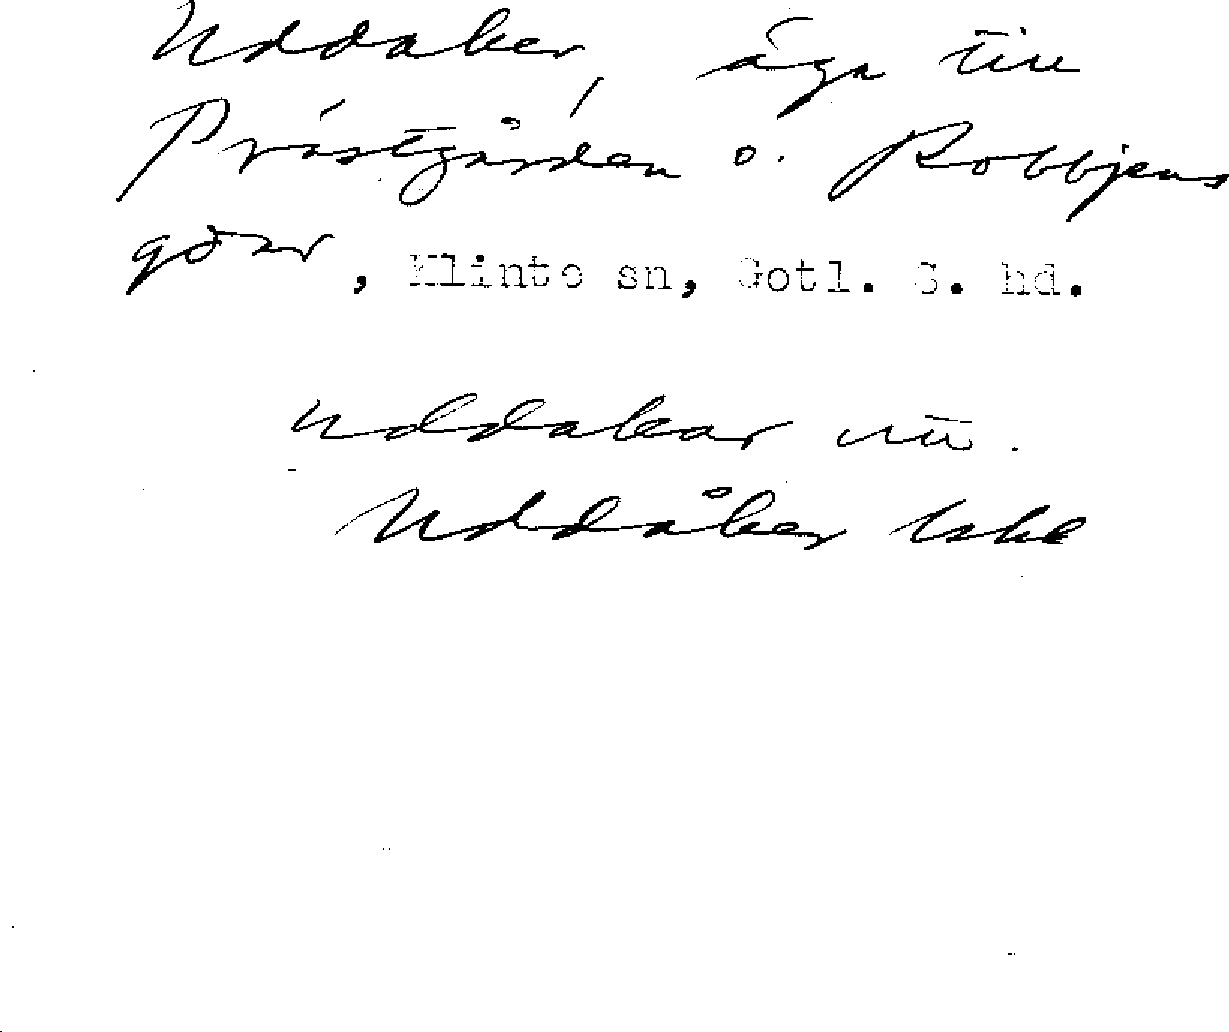 Uddaker, äga till
Prästgården o. Robbjens
gdar, Klinte sn, Gotl. S. hd.
uddakar
Uddåker